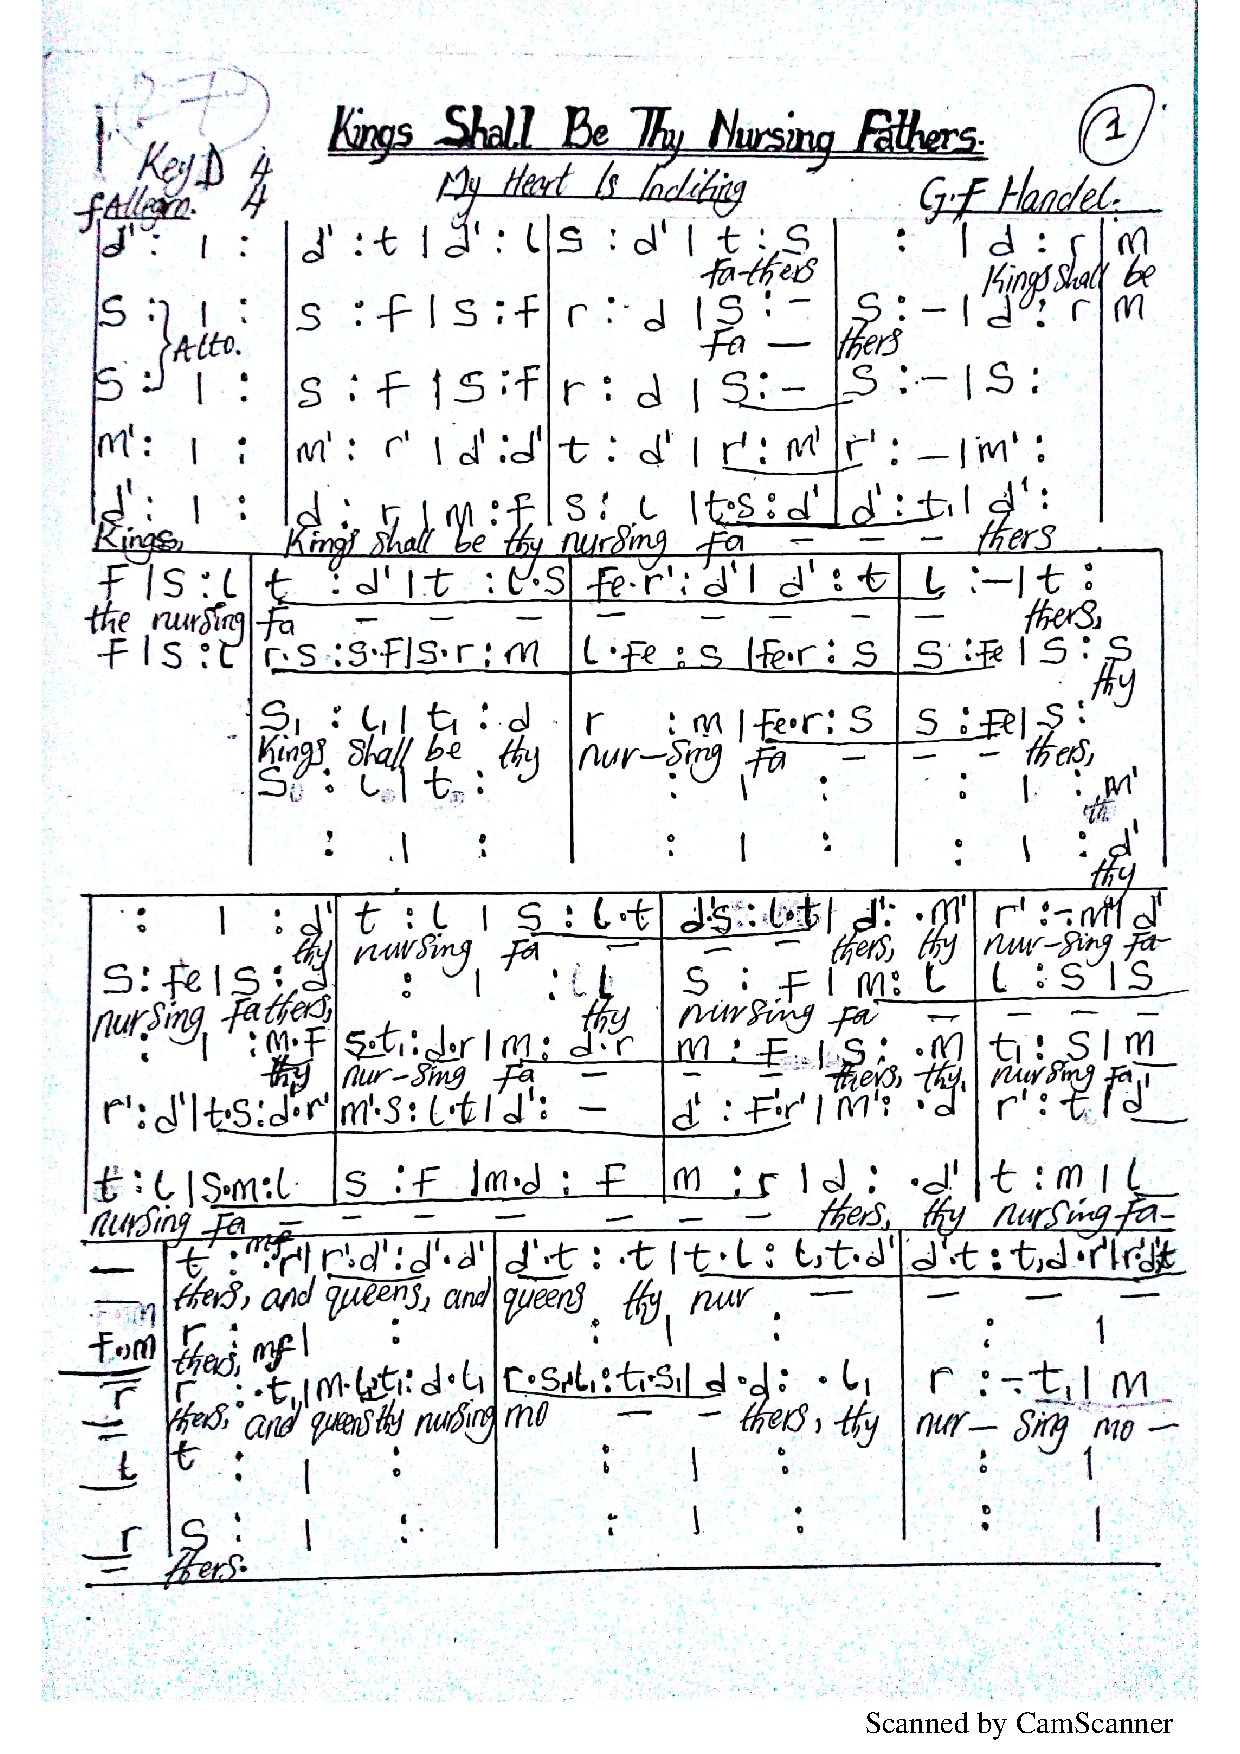 27
Kings Shall Be Thy Nursing Fathers.
1
Key D 4/4
My Heart Is Inditing
G.F Handel.
f Allegro.
d' : | : | d' : t | d' : l | s : d' | t : s | : | d : r | m
Fa-thers Kings shall be
s : | : | s : f | s : f | r : d | s : - | s : - | d : r | m
Alto. Fa — thers
s : | : | s : f | s : f | r : d | s : - | s : - | s :
m' : | : | m' : r' | d' : d' | t : d' | r' : m' | r' : - | m' :
d' : | : | d : r | m : f | s : l | t.s : d' | d' : t₁ | d' :
Kings, Kings shall be thy nursing Fa - - - thers
f | s : l | t : d' | t : l.s | fe.r' : d' | d' : t | l : - | t :
the nursing Fa - - - - - - - thers,
f | s : l | r.s : s.f | s.r : m | l.fe : s | fe.r : s | s : fe | s : s
thy
s₁ : l₁ | t₁ : d | r : m | fe.r : s | s : fe | s :
Kings shall be thy nur-sing Fa - - - thers,
s₁ : l₁ | t₁ : | : | : | : | : m'
th
: | : | : | : | : | : d'
thy
: | : d' | t : l | s : l.t | d's : l.t | d' : .m' | r' : -.m' | d'
thy nursing Fa - - - thers, thy nur-sing Fa-
s : fe | s : d | : | : l | s : f | m : l | l : s | s
nursing Fathers, thy nursing Fa - - - -
: | : m.f | s.t₁ : d.r | m : d.r | m : f | s : .m | t₁ : s | m
thy nur-sing Fa - - - thers, thy, nursing Fa
r' : d' | t.s : d'.r' | m'.s : l.t | d' : - | d' : f'.r' | m' : .d' | r' : t | d'
t : l | s.m : l | s : f | m.d : f | m : r | d : .d' | t : m | l
nursing Fa - - - - - - - thers, thy nursing Fa-
— | t : .r' | r'.d' : d'.d' | d'.t : .t | t.l : l,t.d' | d'.t : t,d.r' | r'.d't
mf
thers, and queens, and queens thy nur — — — —
f.m | r : | : | : | : | : |
thers, mf
r | r : .t₁ | m.l₁,t₁ : d.l₁ | r.s₁,l₁ : t₁.s₁ | d.d : .l₁ | r : -.t₁ | m
thers, and queens thy nursing mo — - - thers, thy nur — sing mo —
t | t : | : | : | : | : |
r | s : | : | : | : | : |
thers.
Scanned by CamScanner